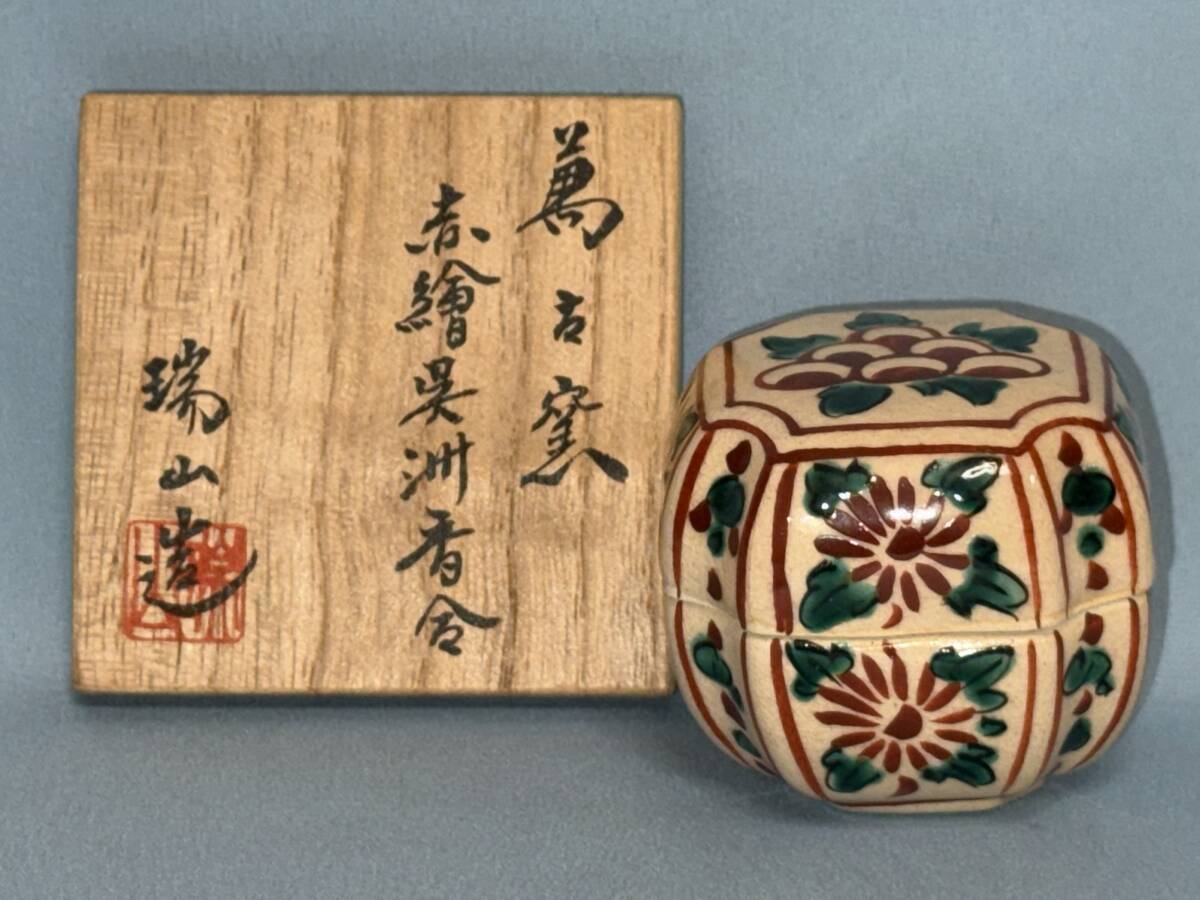 萬古窯
赤繪呉洲香合
瑞山造